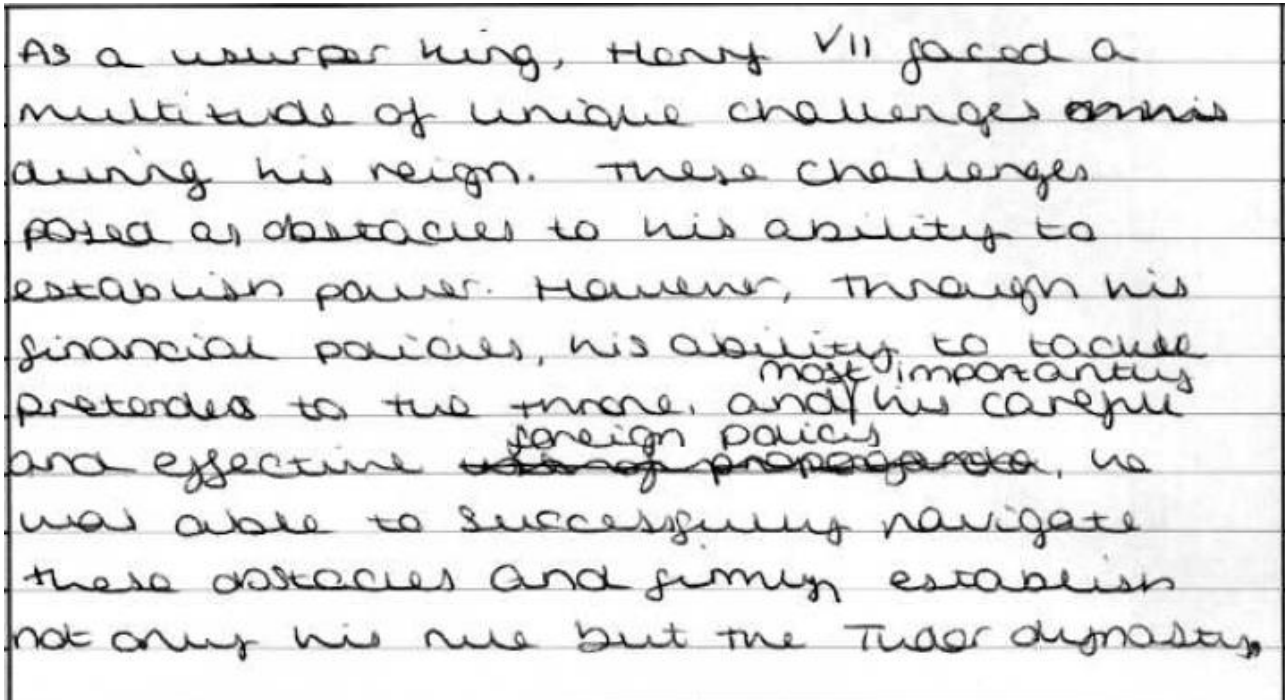 As a usurper king, Henry VII faced a
multitude of unique challenges
during his reign. These challenges
posed as obstacles to his ability to
establish power. However, through his
financial policies, his ability to tackle
most importantly
pretenders to the throne, and his careful
foreign policies
and effective use of propaganda, he
was able to successfully navigate
these obstacles and firmly establish
not only his rule but the Tudor dynasty.